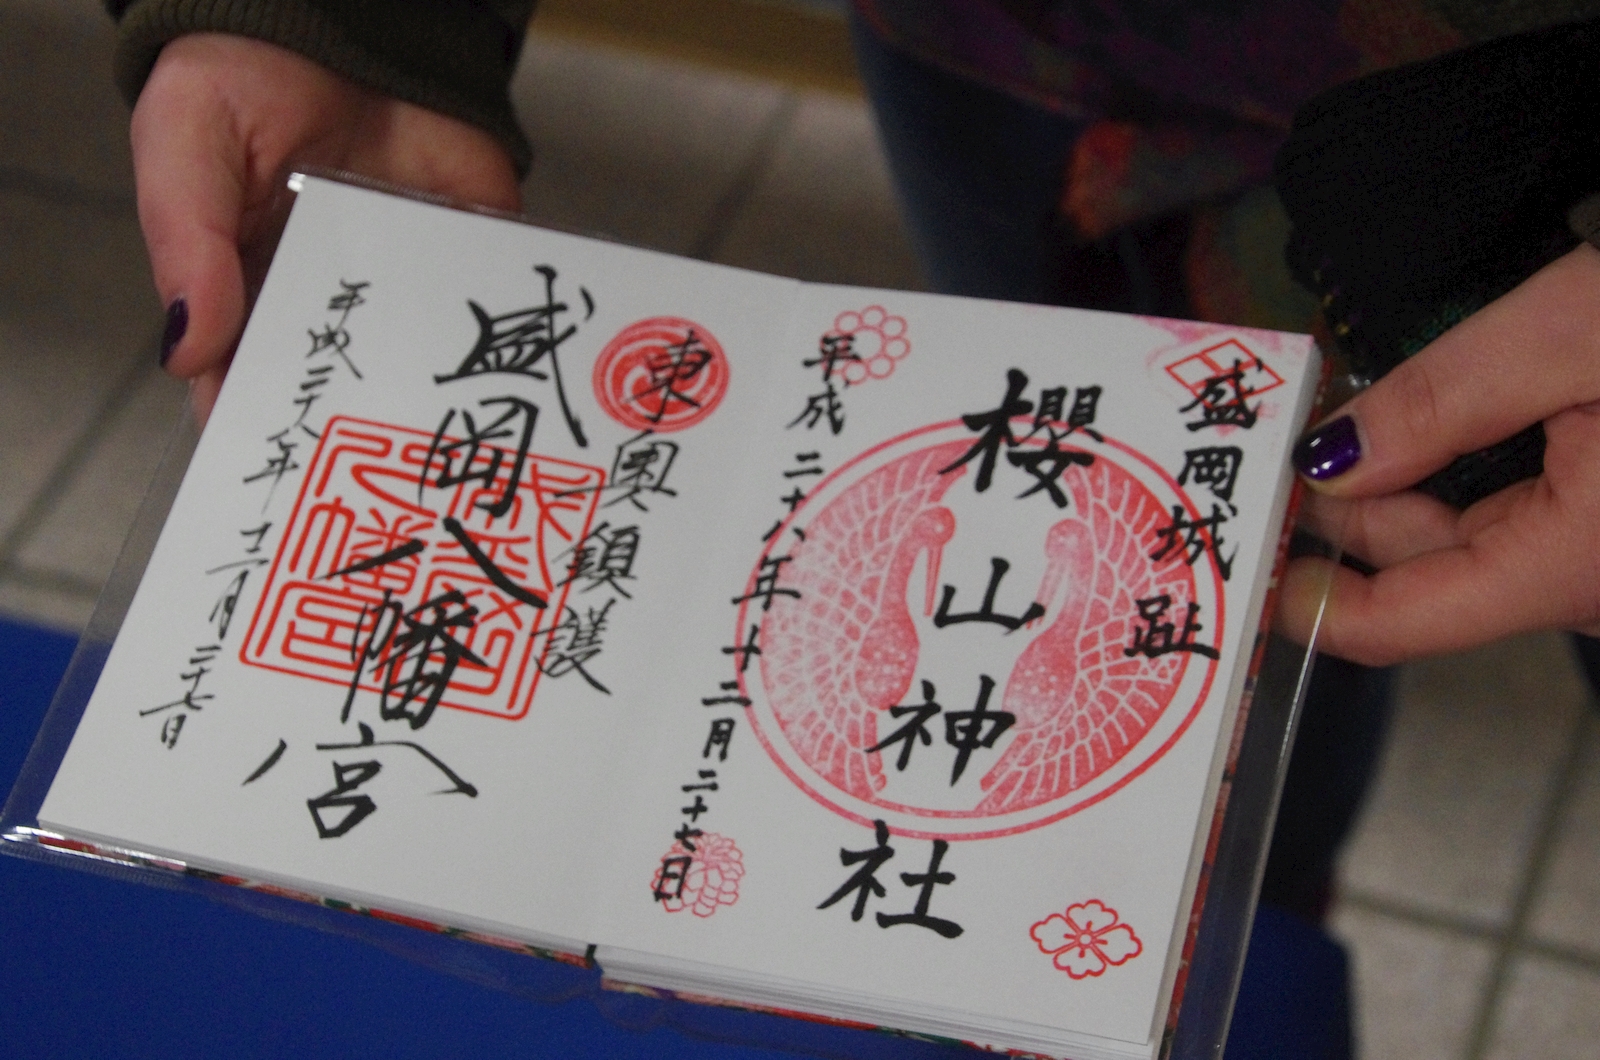 盛岡城趾
櫻山神社
平成二十八年十二月二十七日
東奥鎮護
盛岡八幡宮
平成二十八年十二月二十七日